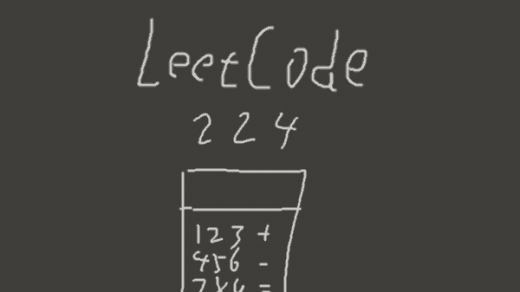 LeetCode
224
123 +
456 -
=